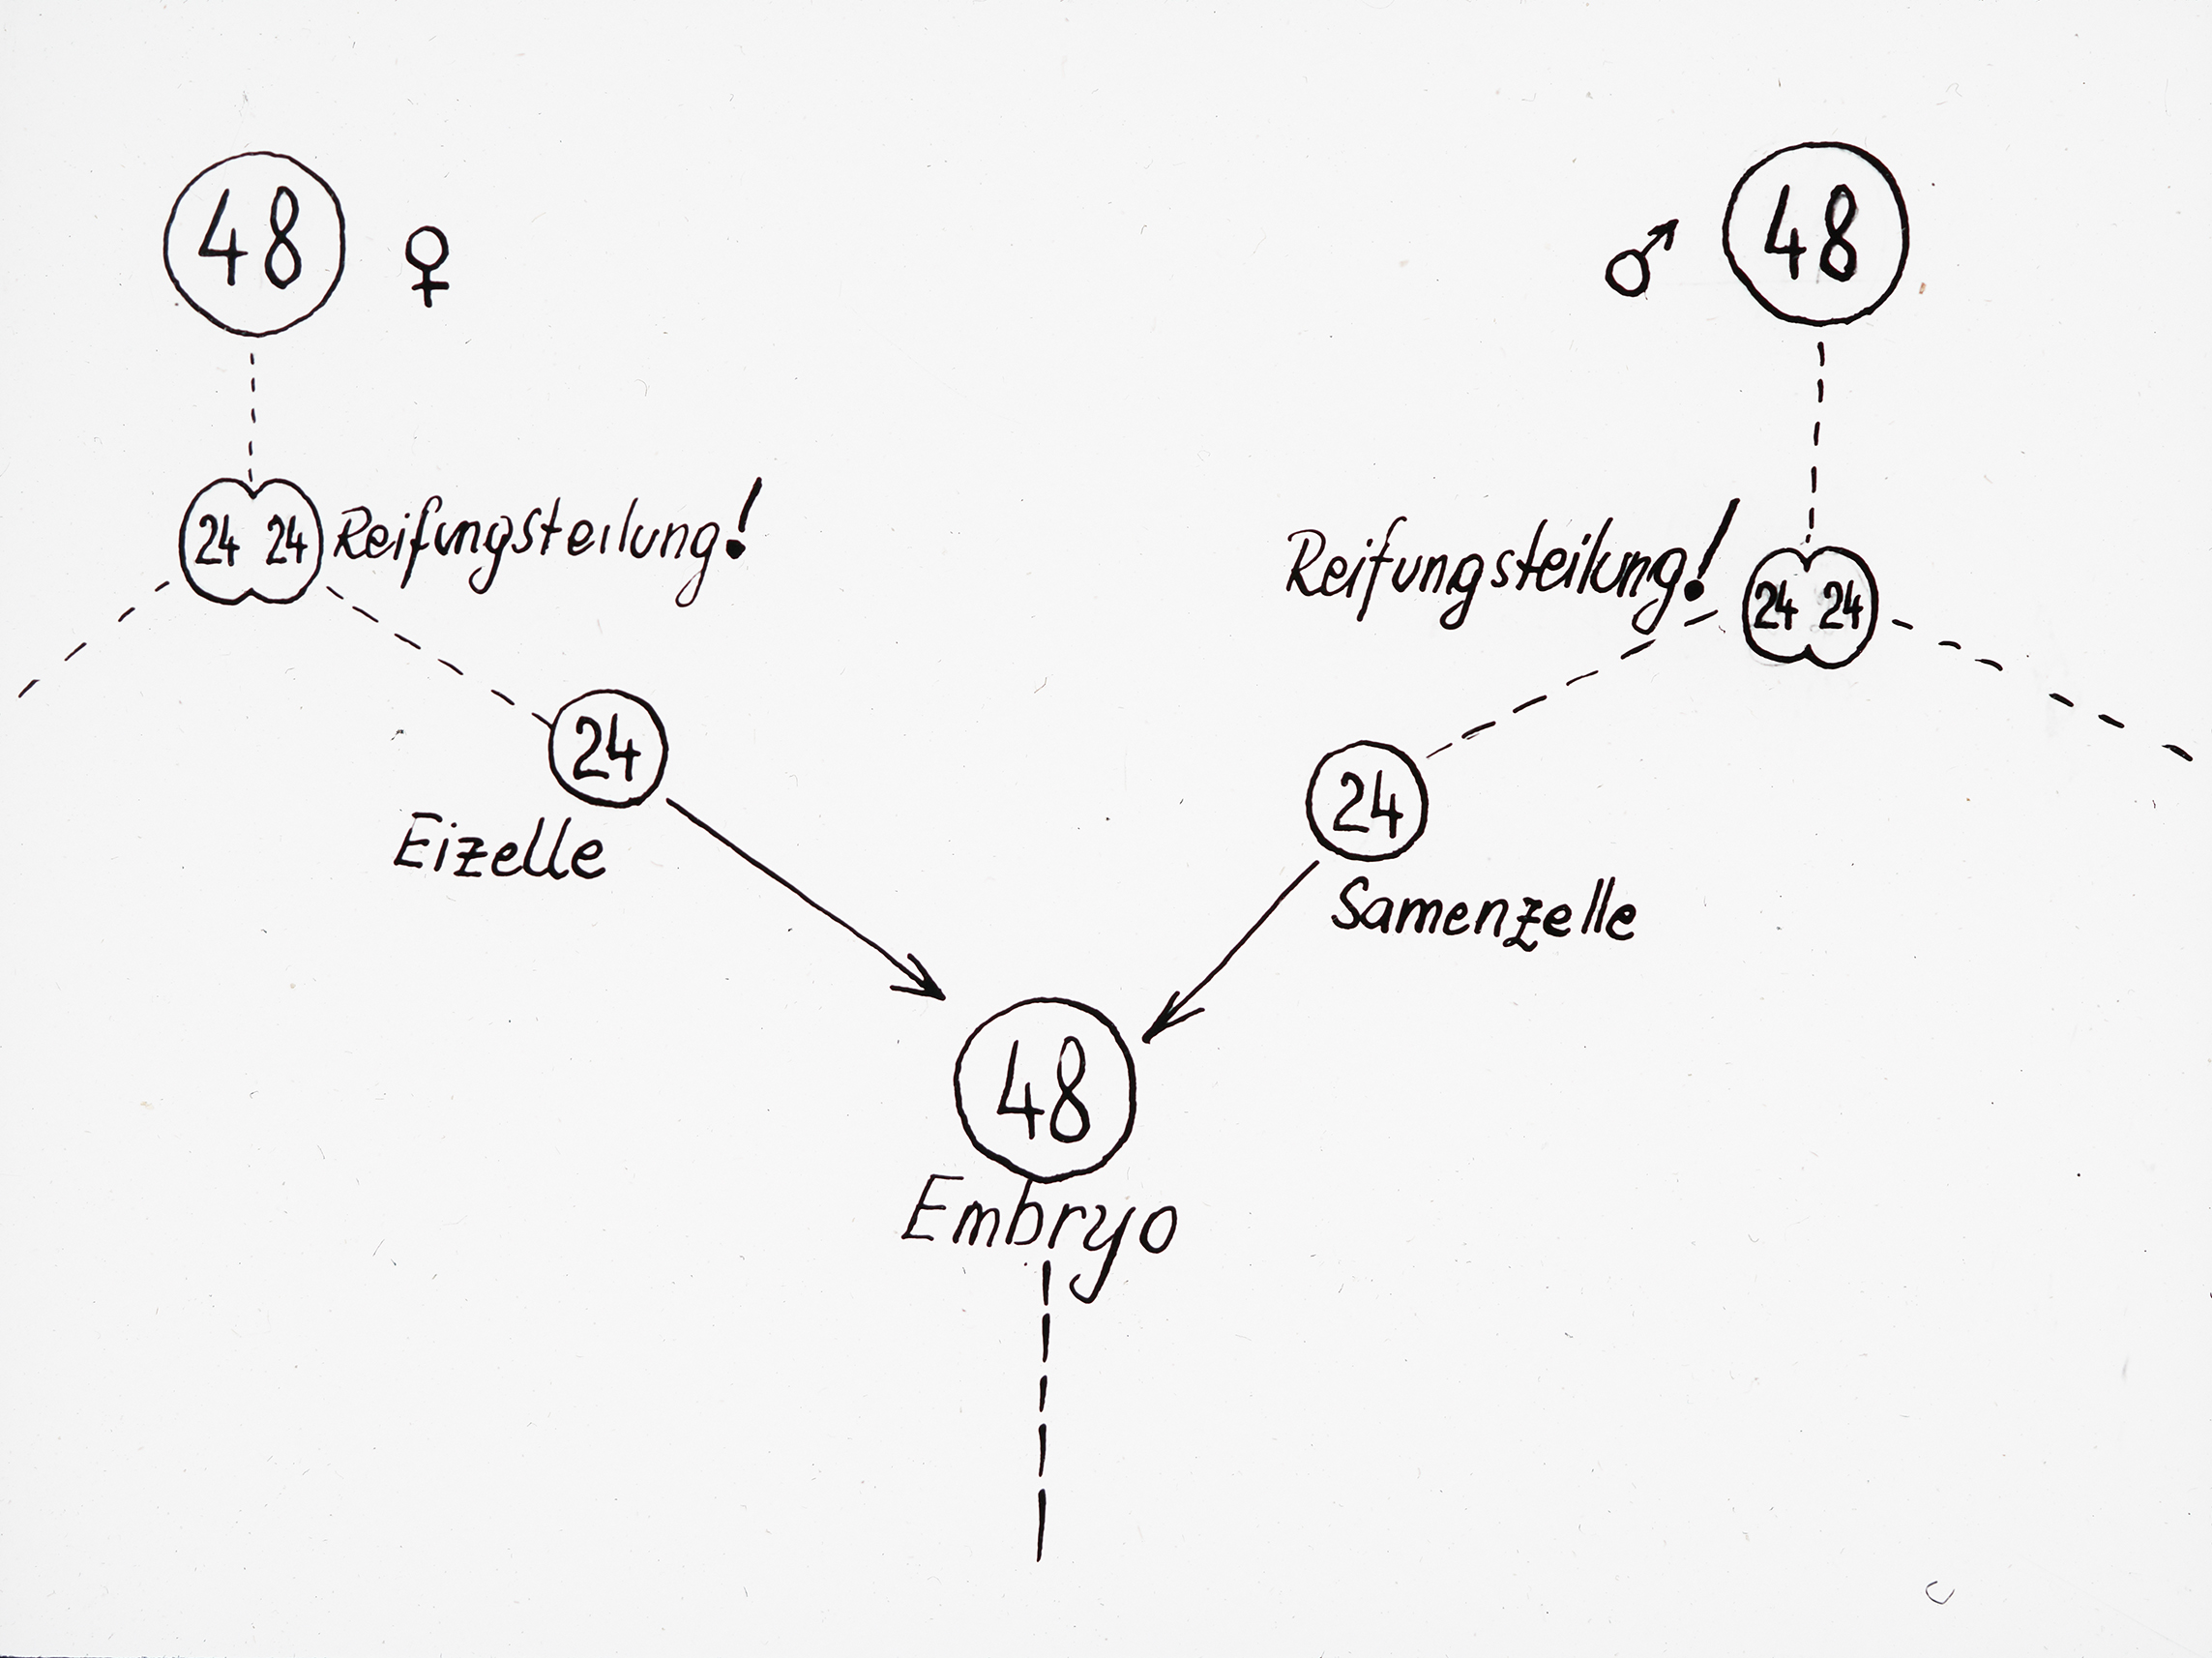 48 ♀
♂ 48
24 24 Reifungsteilung!
Reifungsteilung! 24 24
24
Eizelle
24
Samenzelle
48
Embryo